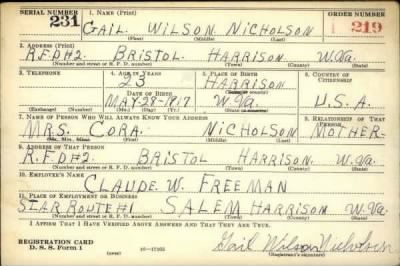 SERIAL NUMBER 1. NAME (Print) ORDER NUMBER
231 GAIL WILSON NICHOLSON 219
(First) (Middle) (Last)
2. ADDRESS (Print)
R.F.D#2. BRISTOL HARRISON W.Va.
(Number and street or R. F. D. number) (Town) (County) (State)
3. TELEPHONE 4. AGE IN YEARS 5. PLACE OF BIRTH 6. COUNTRY OF CITIZENSHIP
23 HARRISON
DATE OF BIRTH (Town or county)
MAY-28-1917 W.Va. U.S.A.
(Exchange) (Number) (Mo.) (Day) (Yr.) (State or country)
7. NAME OF PERSON WHO WILL ALWAYS KNOW YOUR ADDRESS 8. RELATIONSHIP OF THAT PERSON
MRS. CORA. NICHOLSON MOTHER-
(Mr., Mrs., Miss) (First) (Middle) (Last)
9. ADDRESS OF THAT PERSON
R.F.D#2 BRISTOL HARRISON. W.Va.
(Number and street or R. F. D. number) (Town) (County) (State)
10. EMPLOYER'S NAME
CLAUDE. W. FREEMAN
11. PLACE OF EMPLOYMENT OR BUSINESS
STAR ROUTE#1 SALEM HARRISON W.Va.
(Number and street or R. F. D. number) (Town) (County) (State)
I AFFIRM THAT I HAVE VERIFIED ABOVE ANSWERS AND THAT THEY ARE TRUE.
REGISTRATION CARD
D. S. S. Form 1 (over) Gail Wilson Nicholson
(Registrant's signature)